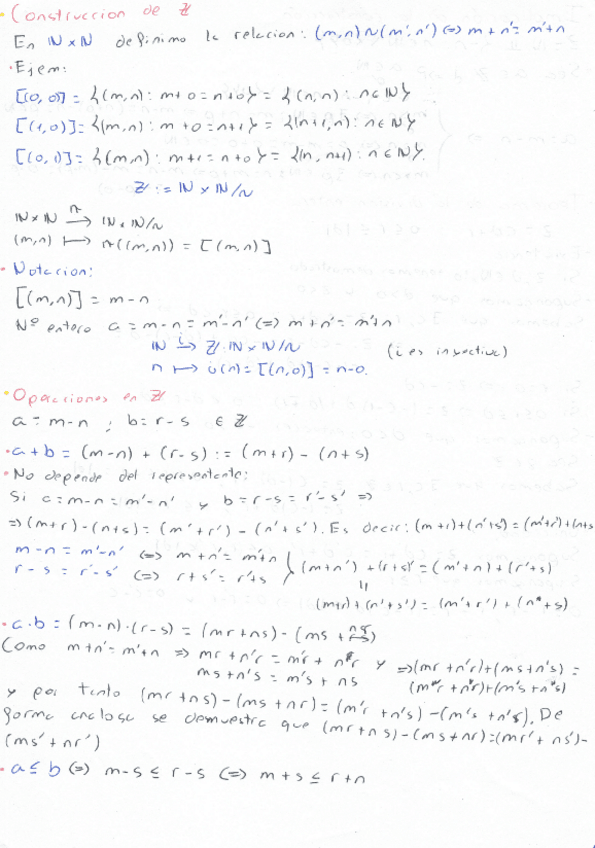 Construccion de ℤ
En ℕ×ℕ definimo la relacion: (m,n)~(m',n') ⟺ m+n'=m'+n
·Ejem:
[(0,0)] = {(m,n): m+0=n+0} = {(n,n): n∈ℕ}.
[(1,0)] = {(m,n): m+0=n+1} = {(n+1,n): n∈ℕ}
[(0,1)] = {(m,n): m+1=n+0} = {(n,n+1): n∈ℕ}.
ℤ := ℕ×ℕ/~
ℕ×ℕ →π ℕ×ℕ/~
(m,n) ⟼ π((m,n)) = [(m,n)]
· Notacion:
[(m,n)] = m-n
Nº entero a = m-n = m'-n' ⟺ m+n' = m'+n
ℕ →i ℤ ℕ×ℕ/~ (i es inyectiva)
n ⟼ i(n) = [(n,0)] = n-0.
·Operaciones en ℤ
a = m-n ; b = r-s ∈ ℤ
·a+b = (m-n)+(r-s) := (m+r)-(n+s)
·No depende del representante:
Si a=m-n=m'-n' y b=r-s=r'-s' ⟹
⟹(m+r)-(n+s) = (m'+r')-(n'+s'). Es decir: (m+r)+(n'+s') = (m'+r')+(n+s
m-n = m'-n' ⟺ m+n' = m'+n
r-s = r'-s' ⟺ r+s' = r'+s } (m+n')+(r+s)' = (m'+n)+(r'+s)
||
(m+r)+(n'+s') = (m'+r')+(n+s)
·a·b = (m-n)·(r-s) = (mr+ns)-(ms+nr)
Como m+n'=m'+n ⟹ mr+n'r = m'r+nr y ⟹(mr+n'r)+(ms+n's) =
ms+n's = m's+ns (m'r+nr)+(m's+n's)
y por tanto (mr+ns)-(ms+nr) = (m'r+n's)-(m's+n'r). De
forma analoga se demuestra que (mr+ns)-(ms+nr)=(mr'+ns')-
(ms'+nr')
·a≤b ⟺ m-s ≤ r-s ⟺ m+s ≤ r+n